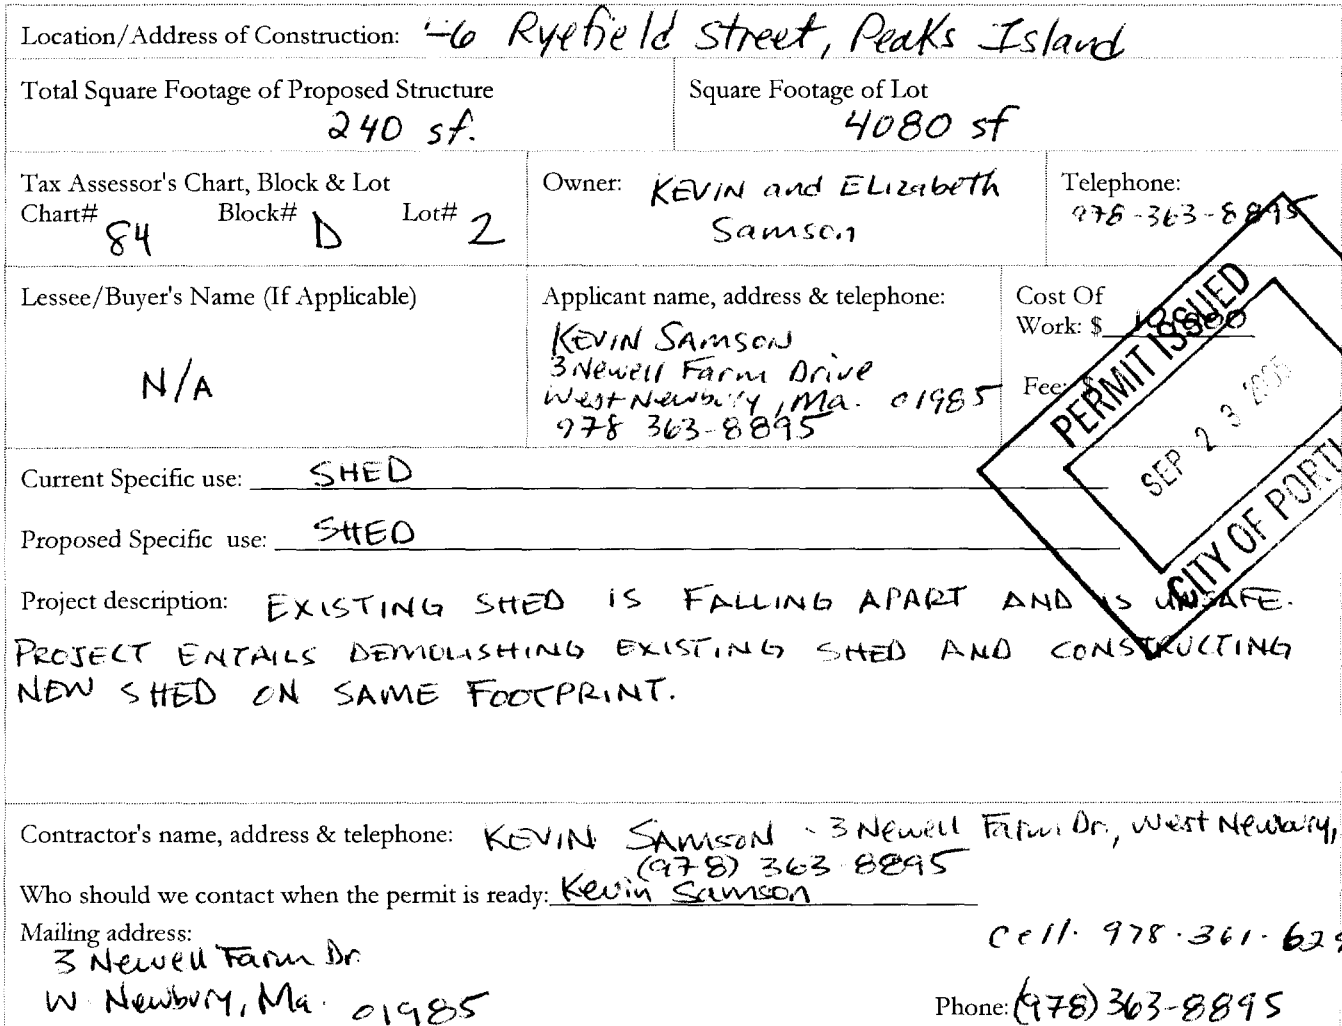 Location/Address of Construction: -6 Ryefield Street, Peaks Island
Total Square Footage of Proposed Structure
240 sf.
Square Footage of Lot
4080 sf
Tax Assessor's Chart, Block & Lot
Chart# 84 Block# D Lot# 2
Owner: KEVIN and ELizabeth
Samson
Telephone:
978-363-8895
Lessee/Buyer's Name (If Applicable)
N/A
Applicant name, address & telephone:
KEVIN SAMSON
3 Newell Farm Drive
West Newbury, Ma. 01985
978 363-8895
Cost Of
Work: $
Fee: $
PERMIT ISSUED
SEP 23
CITY OF PORTL
Current Specific use: SHED
Proposed Specific use: SHED
Project description: EXISTING SHED IS FALLING APART AND IS UNSAFE.
PROJECT ENTAILS DEMOLISHING EXISTING SHED AND CONSTRUCTING
NEW SHED ON SAME FOOTPRINT.
Contractor's name, address & telephone: KEVIN SAMSON - 3 Newell Farm Dr., West Newbury,
(978) 363-8895
Who should we contact when the permit is ready: Kevin Samson
Mailing address:
3 Newell Farm Dr.
W. Newbury, Ma. 01985
Cell. 978.361.629
Phone: (978) 363-8895